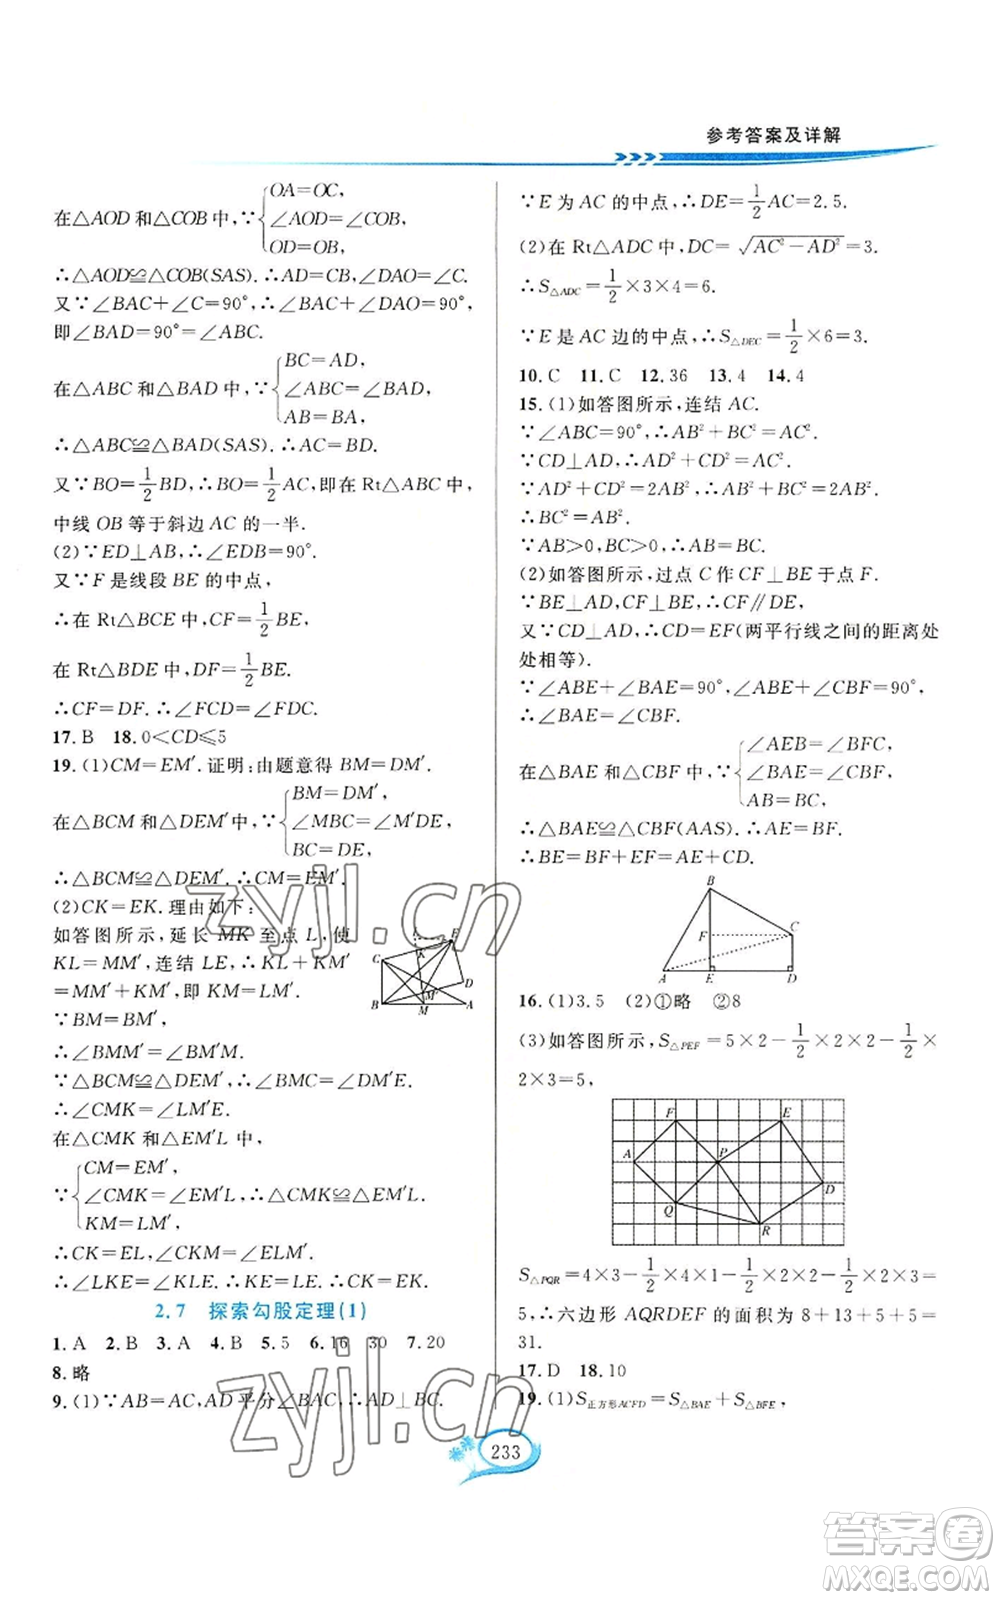 参考答案及详解
在△AOD 和△COB 中,∵{OA=OC,
∠AOD=∠COB,
OD=OB,
∴△AOD≌△COB(SAS).∴AD=CB,∠DAO=∠C.
又∵∠BAC+∠C=90°,∴∠BAC+∠DAO=90°,
即∠BAD=90°=∠ABC.
在△ABC 和△BAD 中,∵{BC=AD,
∠ABC=∠BAD,
AB=BA,
∴△ABC≌△BAD(SAS).∴AC=BD.
又∵BO=1/2BD,∴BO=1/2AC,即在 Rt△ABC 中,
中线 OB 等于斜边 AC 的一半.
(2)∵ED⊥AB,∴∠EDB=90°.
又∵F 是线段 BE 的中点,
∴在 Rt△BCE 中,CF=1/2BE,
在 Rt△BDE 中,DF=1/2BE.
∴CF=DF.∴∠FCD=∠FDC.
17.B 18.0<CD≤5
19.(1)CM=EM′.证明:由题意得 BM=DM′.
在△BCM 和△DEM′中,∵{BM=DM′,
∠MBC=∠M′DE,
BC=DE,
∴△BCM≌△DEM′.∴CM=EM′.
(2)CK=EK.理由如下:
如答图所示,延长 MK 至点 L,使
KL=MM′,连结 LE,∴KL+KM′
=MM′+KM′,即 KM=LM′.
∵BM=BM′,
∴∠BMM′=∠BM′M.
∵△BCM≌△DEM′,∴∠BMC=∠DM′E.
∴∠CMK=∠LM′E.
在△CMK 和△EM′L 中,
∵{CM=EM′,
∠CMK=∠EM′L,∴△CMK≌△EM′L.
KM=LM′,
∴CK=EL,∠CKM=∠ELM′.
∴∠LKE=∠KLE.∴EL=EK.∴CK=EK.
2.7 探索勾股定理(1)
1.A 2.B 3.A 4.B 5.5 6.16 30 7.20
8.略
9.(1)∵AB=AC,AD 平分∠BAC,∴AD⊥BC.
∵E 为 AC 的中点,∴DE=1/2AC=2.5.
(2)在 Rt△ADC 中,DC=√(AC²-AD²)=3.
∴S△ADC=1/2×3×4=6.
∵E 是 AC 边的中点,∴S△DEC=1/2×6=3.
10.C 11.C 12.36 13.4 14.4
15.(1)如答图所示,连结 AC.
∵∠ABC=90°,∴AB²+BC²=AC².
∵CD⊥AD,∴AD²+CD²=AC².
∵AD²+CD²=2AB²,∴AB²+BC²=2AB².
∴BC²=AB².
∵AB>0,BC>0,∴AB=BC.
(2)如答图所示,过点 C 作 CF⊥BE于点 F.
∵BE⊥AD,CF⊥BE,∴CF∥DE,
又∵CD⊥AD,∴CD=EF(两平行线之间的距离处
处相等).
∵∠ABE+∠BAE=90°,∠ABE+∠CBF=90°,
∴∠BAE=∠CBF.
在△BAE 和△CBF 中,∵{∠AEB=∠BFC,
∠BAE=∠CBF,
AB=BC,
∴△BAE≌△CBF(AAS).∴AE=BF.
∴BE=BF+EF=AE+CD.
B
F C
A E D
16.(1)3.5 (2)①略 ②8
(3)如答图所示,S△PEF=5×2-1/2×2×2-1/2×
2×3=5,
F E
A P
D
Q
R
S△PQR=4×3-1/2×4×1-1/2×2×2-1/2×2×3=
5,∴六边形 AQRDEF 的面积为 8+13+5+5=
31.
17.D 18.10
19.(1)S正方形ACFD=S△BAE+S△BFE,
233
zyjl.cn
zyjl.cn
答案卷
MXQE.COM